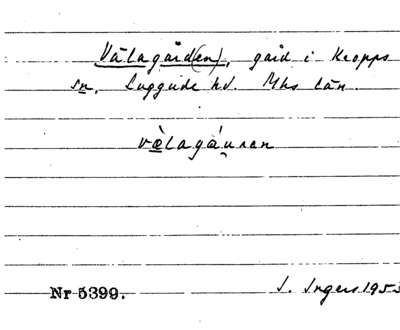 Välagård(en), gård i Kropps
sn, Luggude hd. Mhs län.
vælagáuran
Nr 5399.
I. Ingers 1953